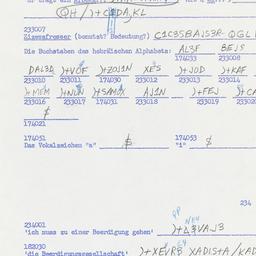 QH/)+C$DA,KL
233007
(bonutzt? Bedeutung?) C1C3SBAJS3R-QGL
Die Buchstaben des hebräischen Alphabets: AL3F BEJS
174033 233008
DAL3D )+VOF )+ZOJ1N XE$ )+JOD )+KAF
233010 233011 174030 233012 233013 233014
)+MEM )+NUN )+SAMOX AJ1N )+FEJ
233016 233017 174031 233018 233019
$
174021
174051 $ 174053 $
Das Vokalzeichen "a" "i"
234
234001
'ich muss zu einer Beerdigung gehen'
182030
'die Beerdigungsgesellschaft' )+XEVR3 XADISTA/KAD